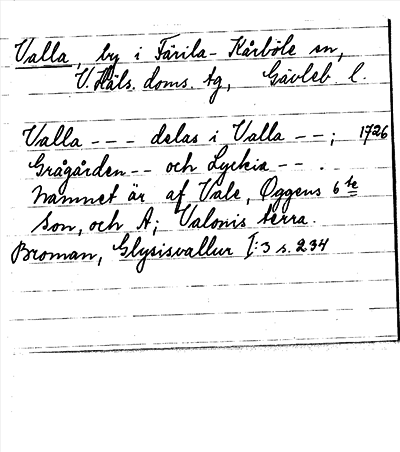 Valla, by i Färila-Kårböle sn,
V. Häls. doms. tg, Gävleb. l.
Valla --- delas i Valla --; 1726
Grågården -- och Lyckia -- .
Namnet är af Vale, Oggens 6te
son, och A; Valonis terra.
Broman, Glysisvallur I:3 s. 234